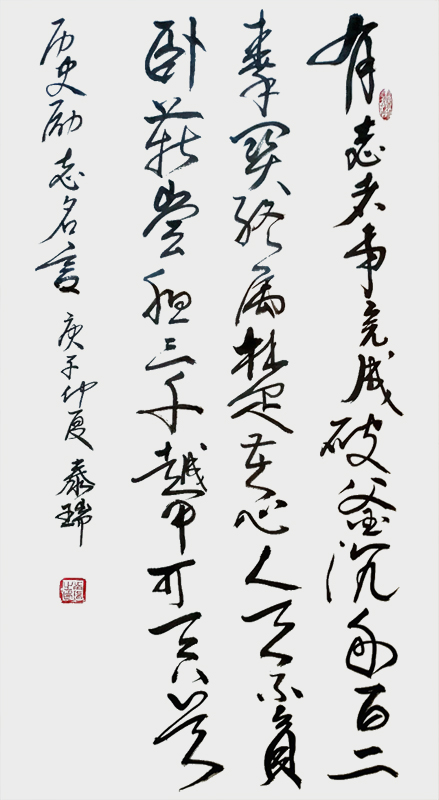 有志者事竟成破釜沉舟百二
秦関终属楚苦心人天不負
卧薪尝胆三千越甲可吞吴
历史励志名言 庚子仲夏 泰瑞